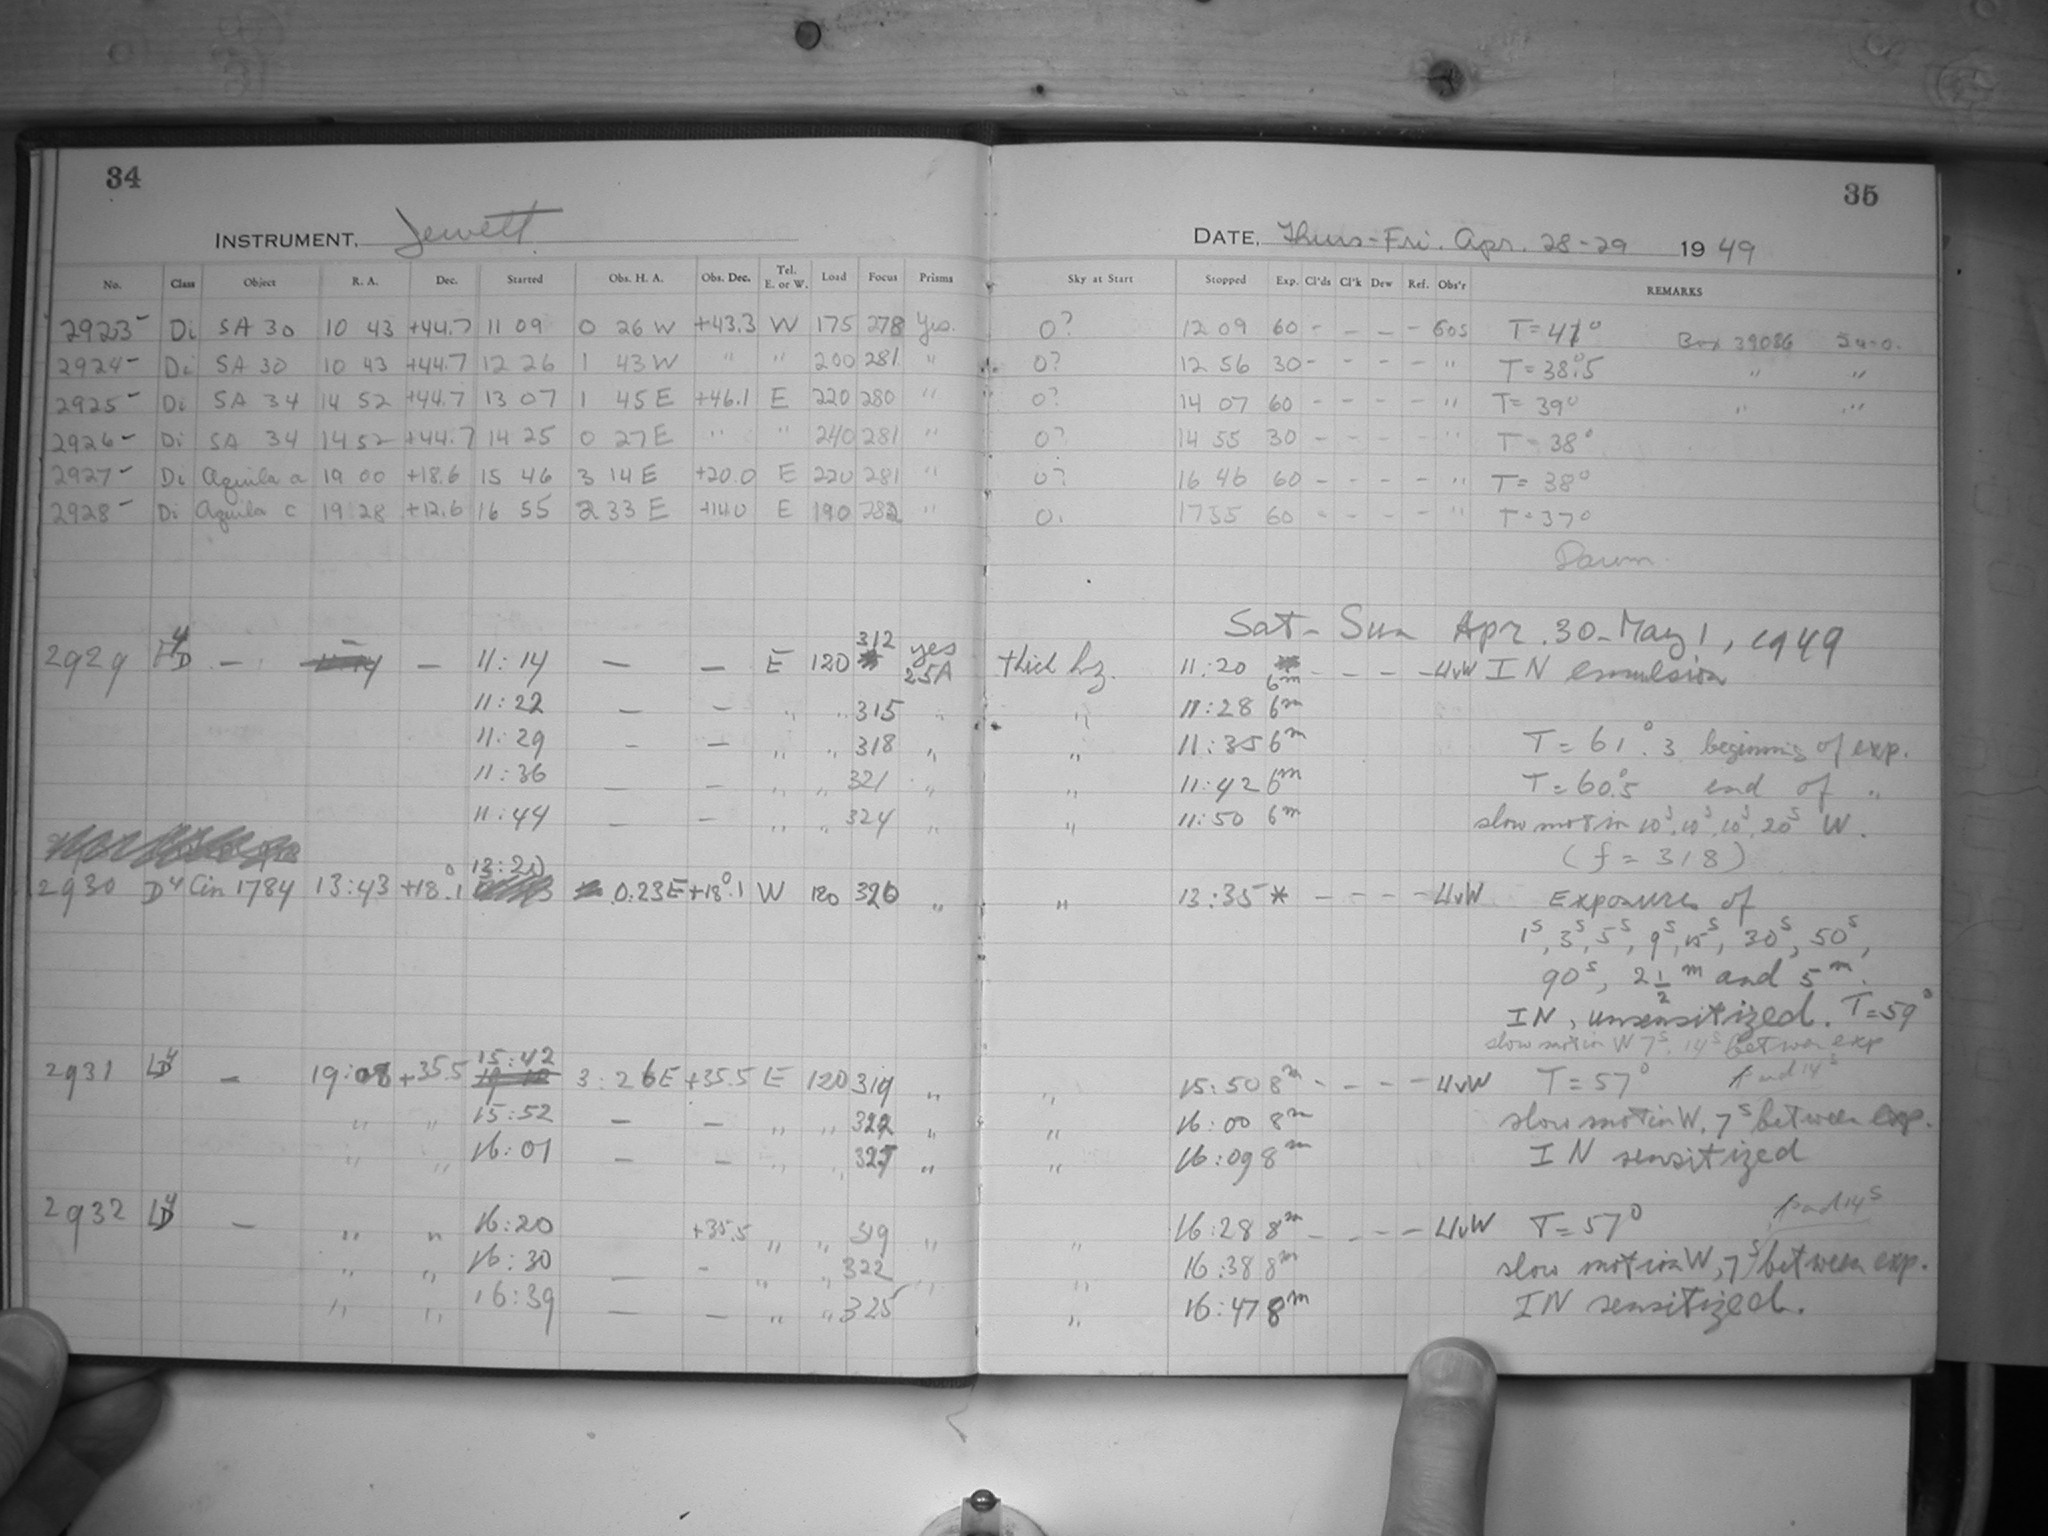 34
35
INSTRUMENT, Jewett
DATE, Thurs-Fri. Apr. 28-29 1949
No. Class Object R. A. Dec. Started Obs. H. A. Obs. Dec. Tel. E. or W. Load Focus Prisms Sky at Start Stopped Exp. Cl'ds Cl'k Dew Ref. Obs'r REMARKS
2923 - Di SA 30 10 43 +44.7 11 09 0 26 W +43.3 W 175 278 Yes. 0? 12 09 60 - - - - T=41° Box 39086
2924 - Di SA 30 10 43 +44.7 12 26 1 43 W " " 200 281 " 0? 12 56 30 - - - - " T=38°.5 " "
2925 - Di SA 34 14 52 +44.7 13 07 1 45 E +46.1 E 220 280 " 0? 14 07 60 - - - - " T=39° " "
2926 - Di SA 34 14 52 +44.7 14 25 0 27 E " " 240 281 " 0? 14 55 30 - - - - " T=38°
2927 - Di Aquila a 19 00 +18.6 15 46 3 14 E +20.0 E 220 281 " 0? 16 46 60 - - - - " T=38°
2928 - Di Aquila c 19 28 +12.6 16 55 2 33 E +14.0 E 190 282 " 0. 17 55 60 - - - - " T=37°
Dawn
Sat-Sun Apr. 30-May 1, 1949
2929 - - 11:14 - - E 120 312 yes 25A thick hz. 11:20 6m - - - - LlvW IN emulsion
11:22 - - " " 315 " " 11:28 6m
11:29 - - " " 318 " " 11:35 6m T=61°.3 beginning of exp.
11:36 - - " " 321 " " 11:42 6m T=60°.5 end of "
11:44 - - " " 324 " " 11:50 6m slow motion 10s, 10s, 10s, 20s W.
(f = 318)
2930 D4 Cin 1784 13:43 +18°.1 13:20 0:23E +18°.1 W 120 320 " " 13:35 * - - - - LlvW Exposures of
1s, 3s, 5s, 9s, 15s, 30s, 50s,
90s, 2½m and 5m.
IN, unsensitized. T=59°
slow motion W 7s, 14s between exp
2931 LD4 - 19:08 +35.5 15:42 3:26E +35.5 E 120 319 " " 15:50 8m - - - - LlvW T=57° and 14s
" " 15:52 - - " " 322 " " 16:00 8m slow motion W, 7s between exp.
" " 16:01 - - " " 325 " " 16:09 8m IN sensitized
2932 LD4 - " " 16:20 +35.5 " " 319 " " 16:28 8m - - - - LlvW T=57° and 14s
" " 16:30 - - " " 322 " " 16:38 8m slow motion W, 7s between exp.
" " 16:39 - - " " 325 " " 16:47 8m IN sensitized.